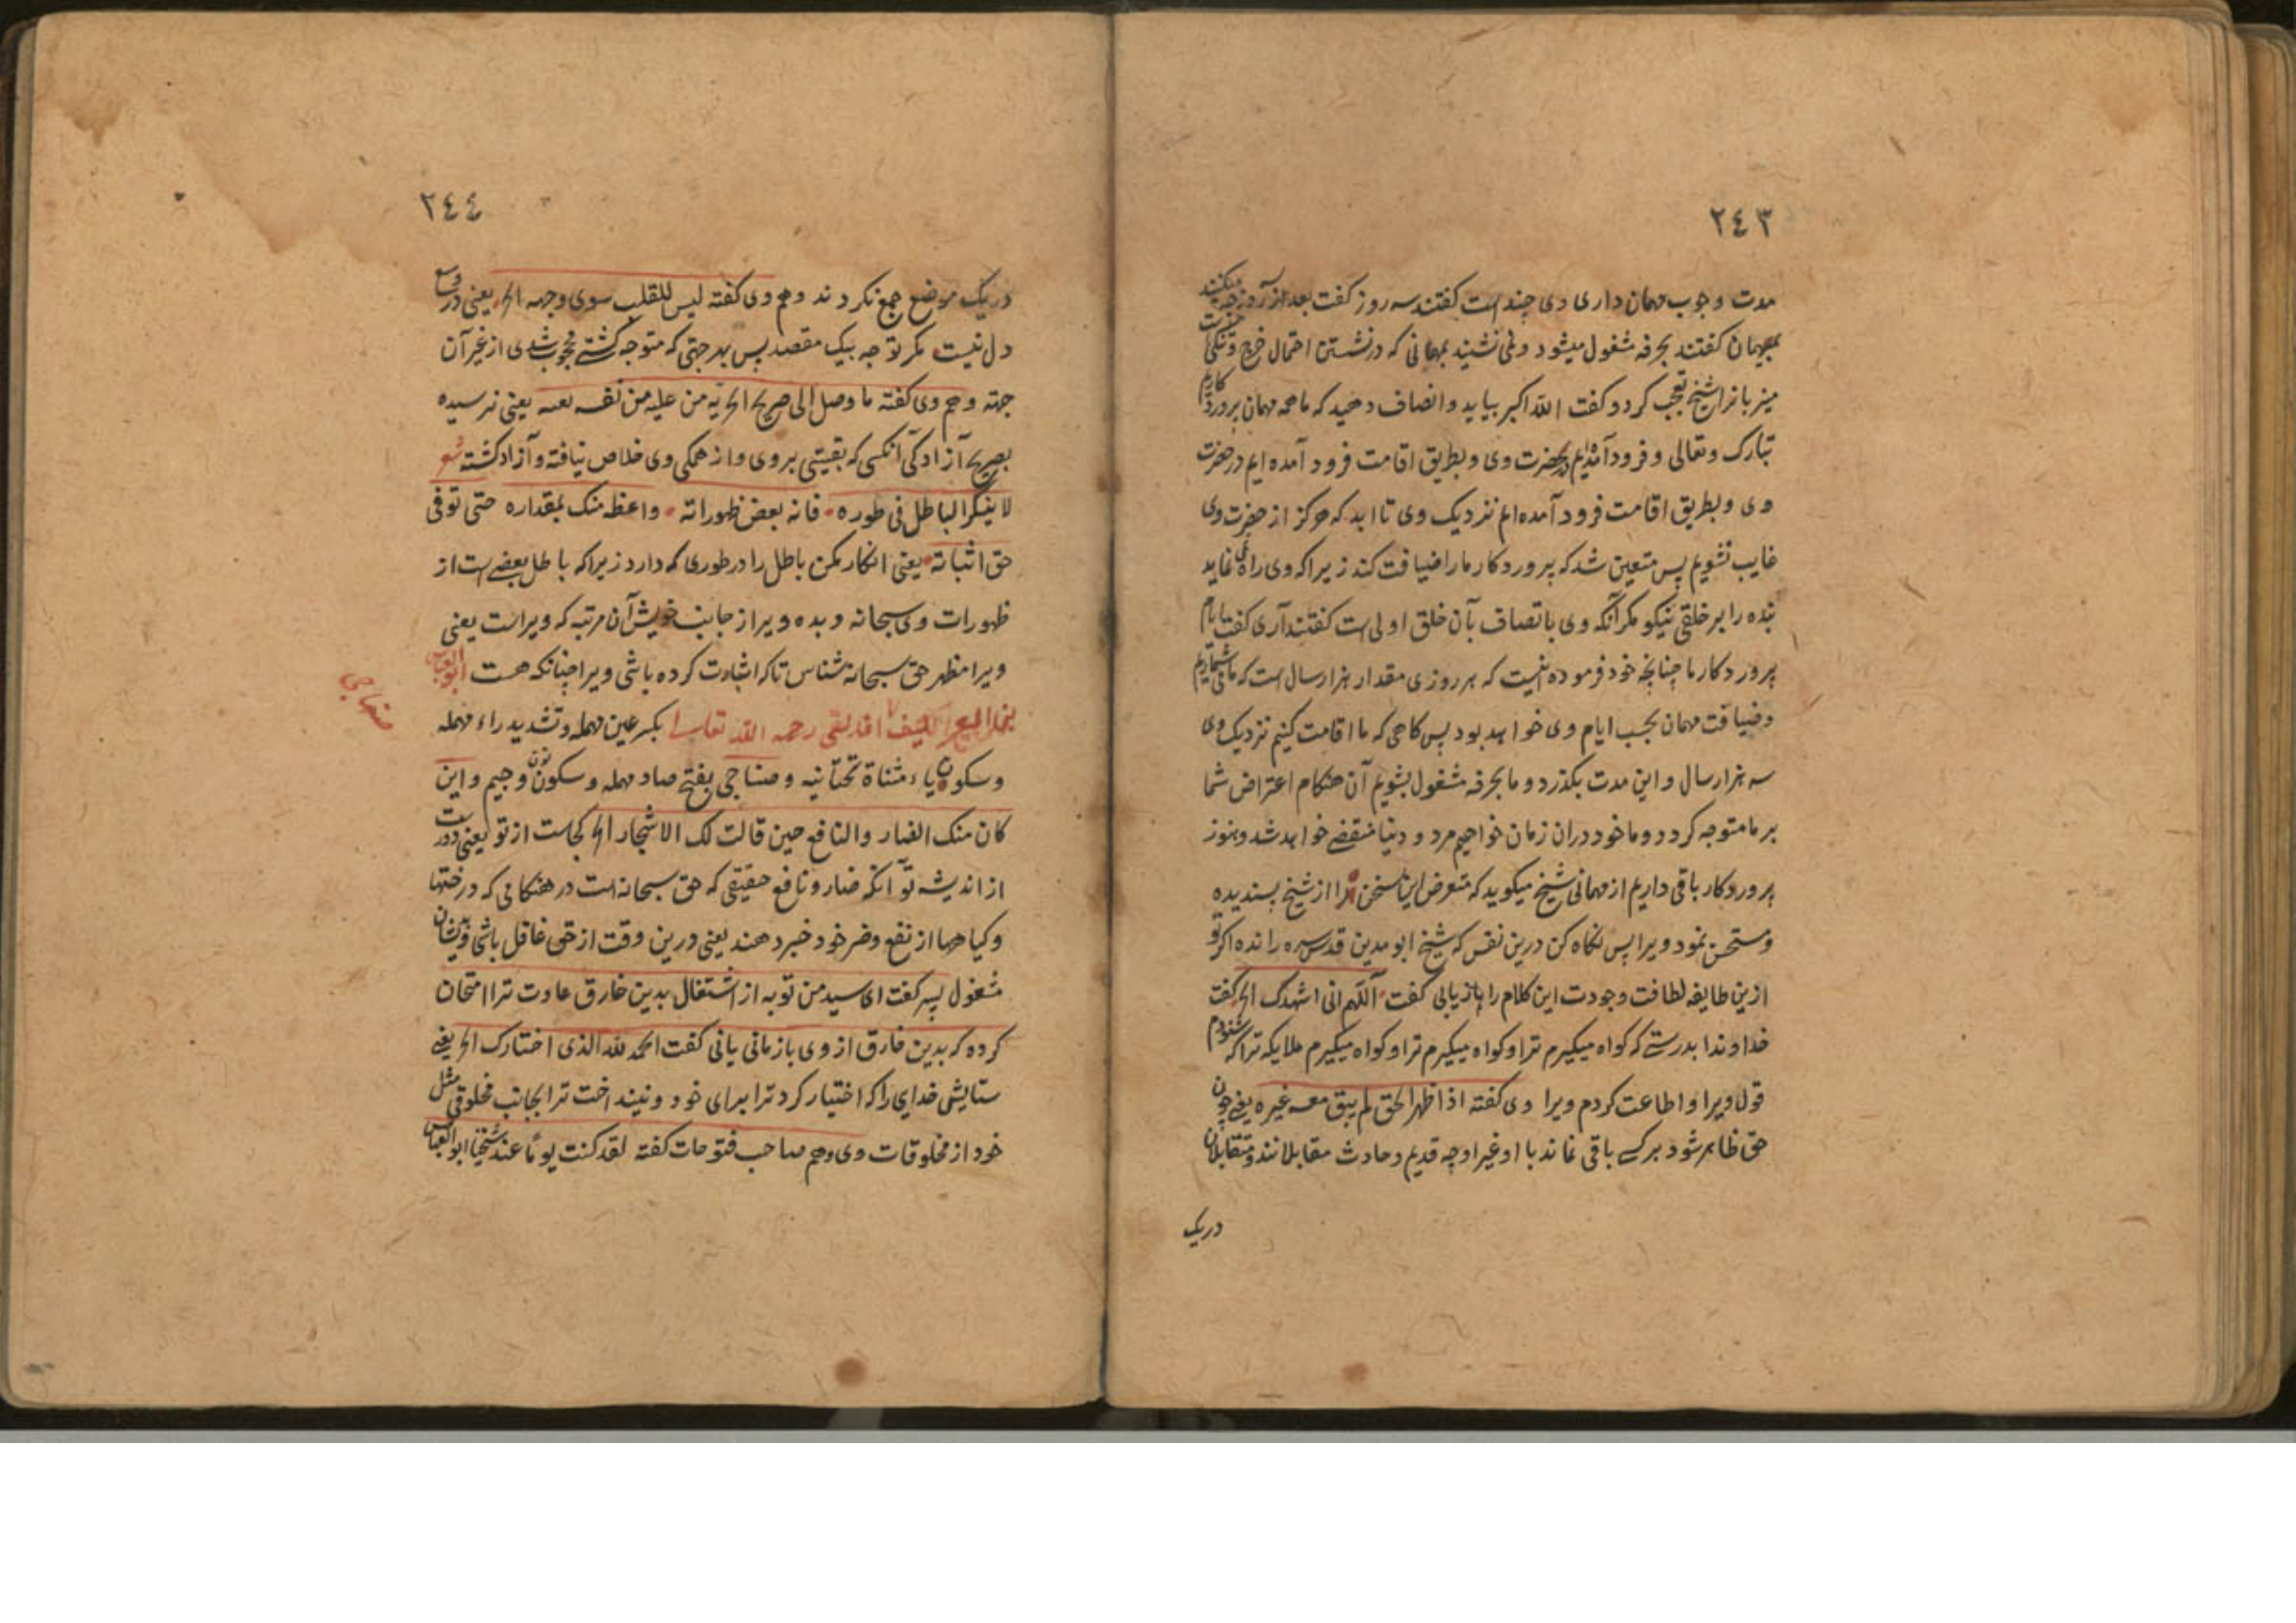 ٢٤٣
مدت وجوب مهمان داری وی چند است گفتند سه روز گفت بعد از آن روز چه میکنند
بمهمان گفتند بحرفه مشغول میشود و نمی نشیند بمهمانی که در نشستن احتمال خرج و تنگی
میزبانرا شیخ تعجب کرد و گفت الله اکبر بیاید و انصاف دهید که ما همه مهمان پروردگاریم
تبارک و تعالی و فرود آمدیم بحضرت وی و بطریق اقامت فرود آمده ایم در حضرت
وی و بطریق اقامت فرود آمده ایم نزدیک وی تا ابد که هرگز از حضرت وی
غایب نشویم پس متعین شد که پروردگار ما را ضیافت کند زیرا که وی راه نمی نماید
بنده را بر خلقی نیکو مگر آنکه وی باتصاف بآن خلق اولی است گفتند آری گفت ایام
پروردگار ما چنانچه خود فرموده اینست که هر روزی مقدار هزار سال است که ما می شماریم
و ضیافت مهمان بحسب ایام وی خواهد بود پس گاهی که ما اقامت کنیم نزدیک وی
سه هزار سال و این مدت بگذرد و ما بحرفه مشغول بشویم آن هنگام اعتراض شما
بر ما متوجه گردد و ما خود دران زمان خواهیم مرد و دنیا منقضی خواهد شد و هنوز
پروردگار باقی داریم از مهمانی شیخ میگوید که متعرض این سخن را از شیخ پسندیده
و مستحسن نمود ویرا پس نگاه کن درین نفس که شیخ ابو مدین قدس سره رانده اگر تو
ازین طایفه لطافت وجودت این کلام را بازیابی گفت اللهم انی اشهدک الخ گفت
خداوندا بدرستی که گواه میگیرم ترا و گواه میگیرم ترا و گواه میگیرم ملایکه ترا که شنودم
قول ویرا و اطاعت کردم ویرا وی گفته اذا ظهر الحق لم یبق معه غیره یعنی چون
حق ظاهر شود بر کسی باقی نماند با او غیر او چه قدیم و حادث مقابلانند و متقابلان
دریک
٢٤٤
دریک موضع جمع نگردند و هم وی گفته لیس للقلب سوی وجهه الخ یعنی در وسع
دل نیست مگر توجه بیک مقصد پس بهر جهتی که متوجه گشتی محجوب شدی از غیر آن
جهته و هم وی گفته ما وصل الی صریح الحریه من علیه من نفسه بقیه یعنی نرسیده
بصریح آزادگی آنکسی که بقیتی بر وی و از همگی وی خلاص نیافته و آزاد گشته شعر
لا ینکر الباطل فی طوره فانه بعض ظهوراته واعطه منک بمقداره حتی توفی
حق اثباته یعنی انکار مکن باطل را در طوری که دارد زیرا که باطل بعضی است از
ظهورات وی سبحانه و بده ویرا از جانب خویش آن مرتبه که ویراست یعنی
ویرا مظهر حق سبحانه شناس تا که اثبات کرده باشی ویرا چنانکه هست ابو العباس
رحمه الله تعالی بکسر عین مهمله و تشدید راء مهمله
صنهاجی
و سکون یاء مثناة تحتانیه و صناجی بفتح صاد مهمله و سکون نون و جیم و این
کان منک الضار والنافع حین قالت لک الاشجار الخ کجاست از تو یعنی دورست
از اندیشه تو آنکه ضار و نافع حقیقی که حق سبحانه است در هنگامی که درختها
و گیاهها از نفع و ضر خود خبر دهند یعنی درین وقت از حق غافل باشی و بدیشان
مشغول پسر گفت ای سید من توبه از اشتغال بدین خارق عادت ترا امتحان
کرده که بدین خارق از وی بازمانی یا نی گفت الحمد لله الذی اختارک الخ یعنی
ستایش خدای را که اختیار کرد ترا برای خود و نینداخت ترا بجانب مخلوقی مثل
خود از مخلوقات وی و هم صاحب فتوحات گفته لقد کنت یوما عند شیخنا ابو العباس